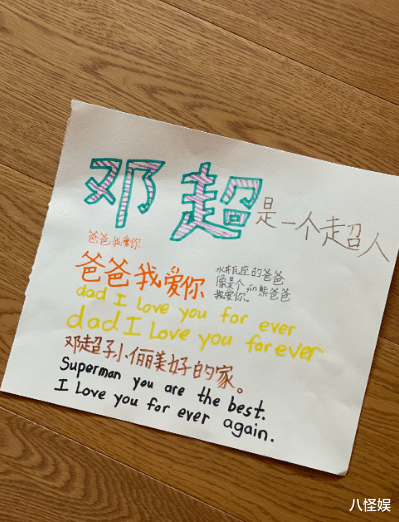 邓超是一个超人
爸爸我爱你
爸爸我爱你
的爸爸
像是个yin熊爸爸
我爱你。
dad I love you for ever
dad I Love you forever
邓超子小俪美好的家。
Superman you are the best.
I Love you for ever again.
八怪娱